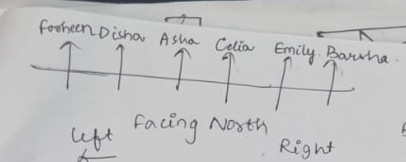 Forheen Disha Asha Celia Emily Barsha
Facing North
left
Right